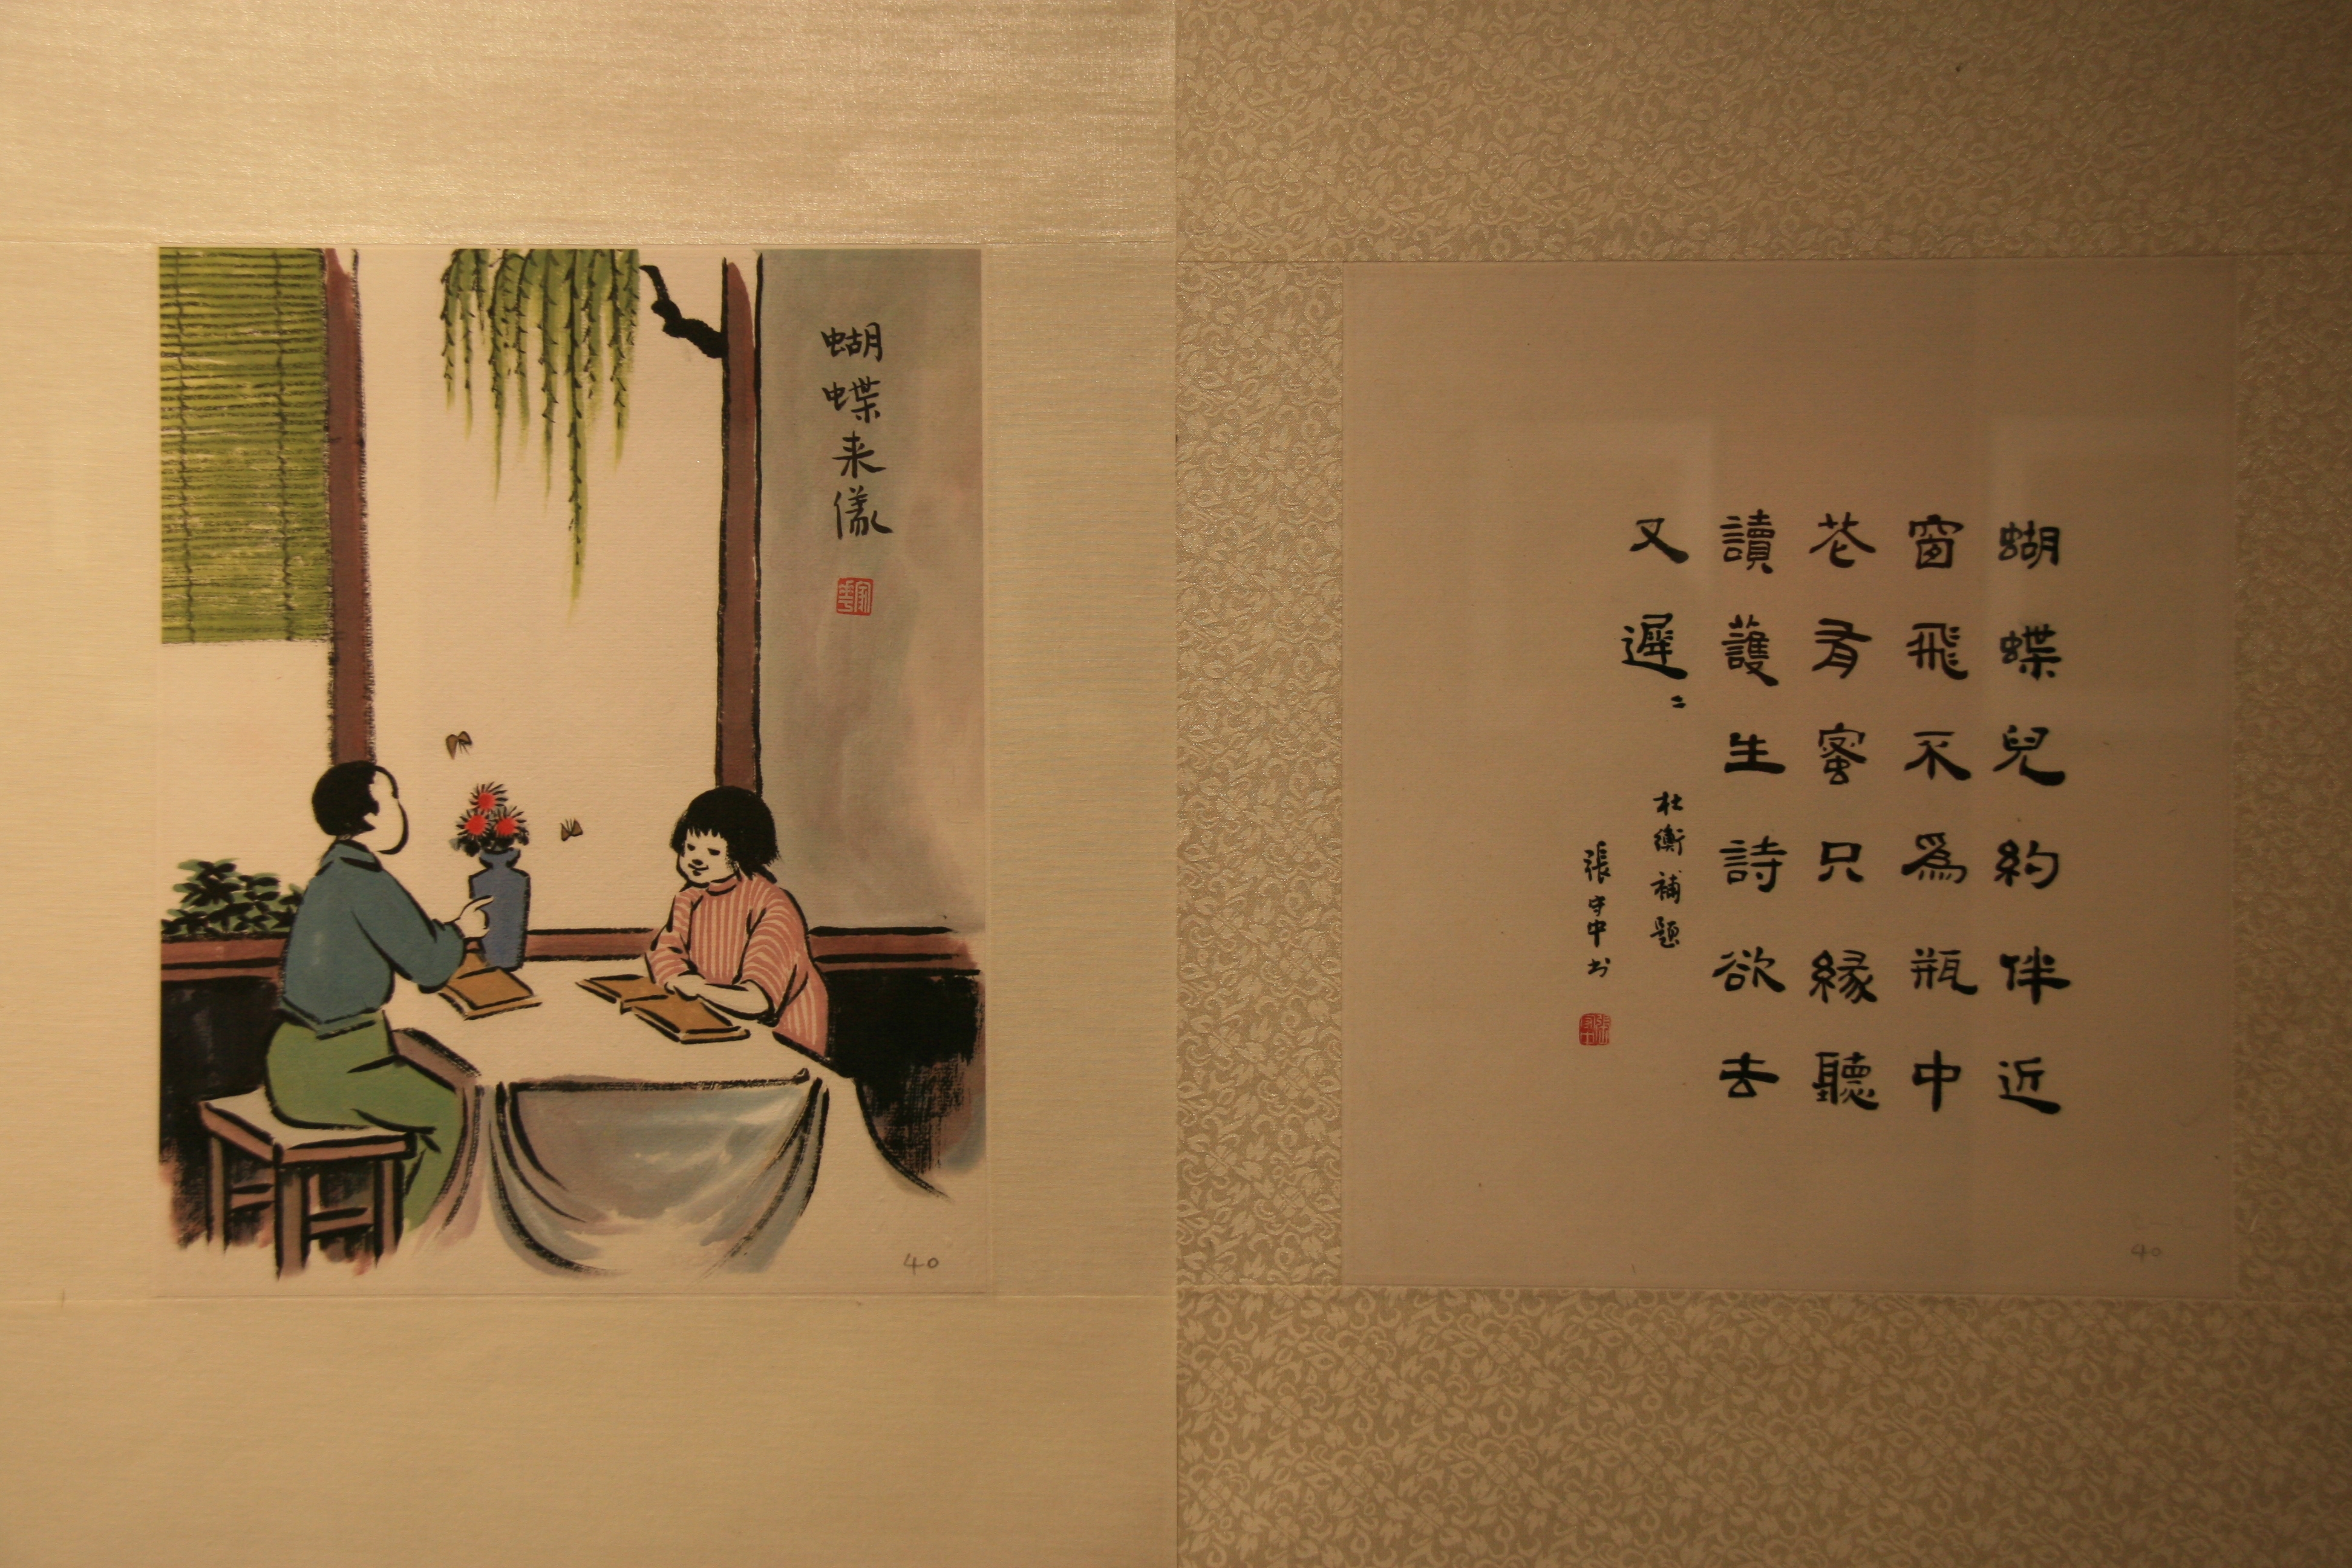 蝴蝶来儀
40
蝴蝶兒約伴近
窗飛不爲瓶中
花有蜜只緣聽
讀護生詩欲去
又遲〻
杜衡補題
張守中书
40